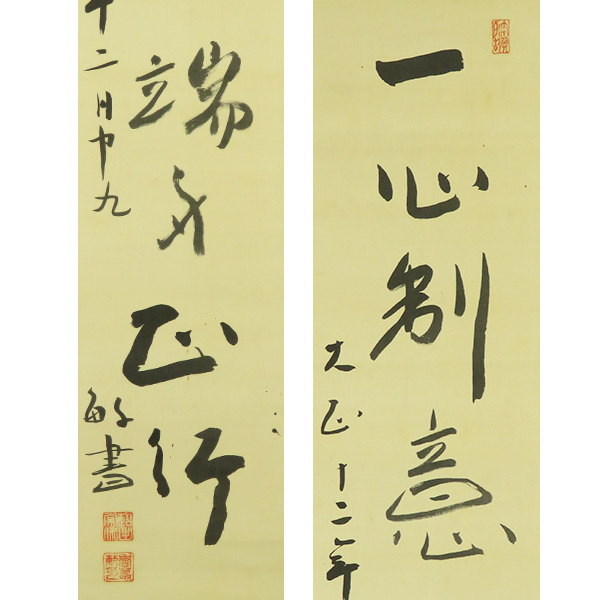 一心制意
大正十二年
端身正行
十二月中九
敏書